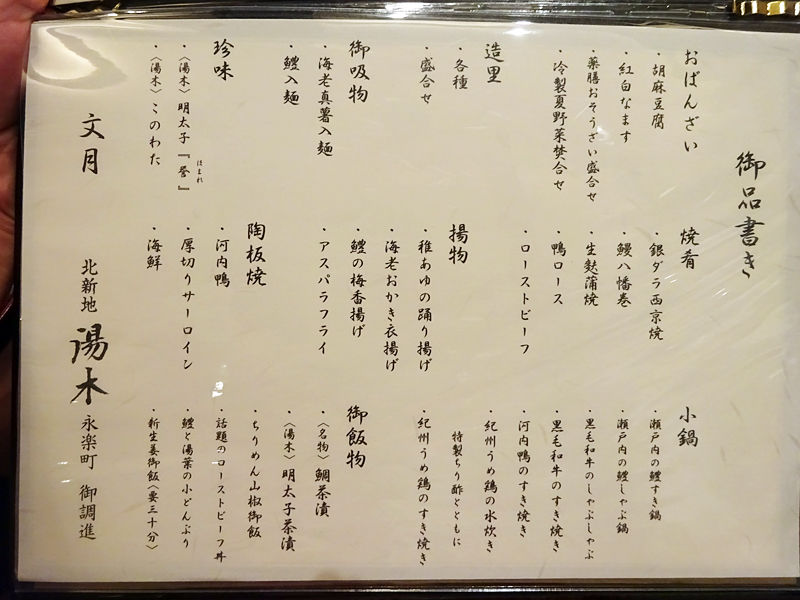 御品書き
おばんざい
・胡麻豆腐
・紅白なます
・薬膳おそうざい盛合せ
・冷製夏野菜焚合せ
造里
・各種
・盛合せ
御吸物
・海老真薯入麺
・鱧入麺
珍味
・〈湯木〉明太子『誉』
ほまれ
・〈湯木〉このわた
焼肴
・銀ダラ西京焼
・鰻八幡巻
・生麩蒲焼
・鴨ロース
・ローストビーフ
揚物
・稚あゆの踊り揚げ
・海老おかき衣揚げ
・鱧の梅香揚げ
・アスパラフライ
陶板焼
・河内鴨
・厚切りサーロイン
・海鮮
小鍋
・瀬戸内の鱧すき鍋
・瀬戸内の鱧しゃぶ鍋
・黒毛和牛のしゃぶしゃぶ
・黒毛和牛のすき焼き
・河内鴨のすき焼き
・紀州うめ鶏の水炊き
特製ちり酢とともに
・紀州うめ鶏のすき焼き
御飯物
・〈名物〉鯛茶漬
・〈湯木〉明太子茶漬
・ちりめん山椒御飯
・話題のローストビーフ丼
・鱧と湯葉の小どんぶり
・新生姜御飯〈要三十分〉
文月
北新地 湯木 永楽町 御調進